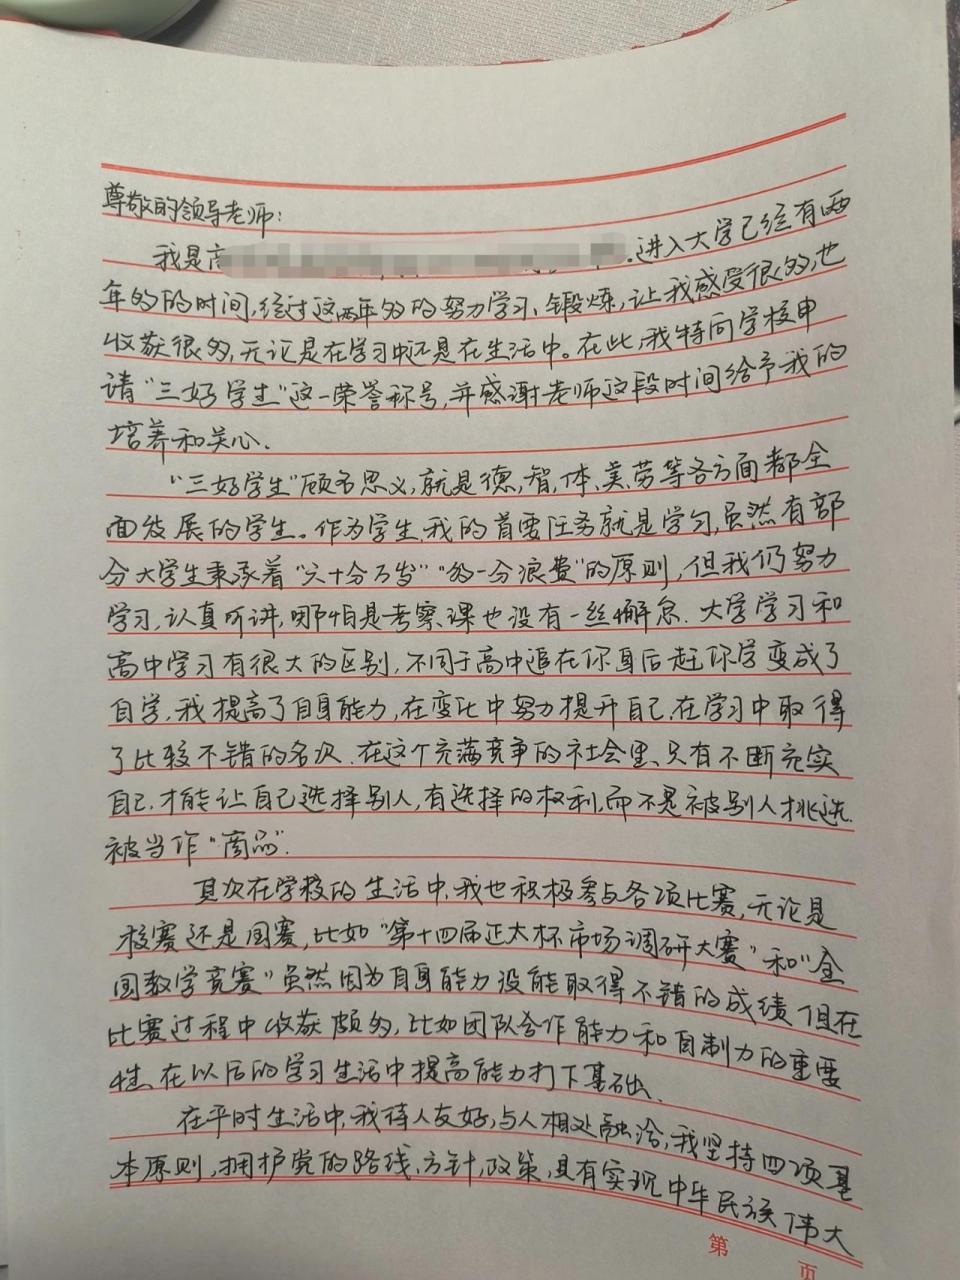 尊敬的领导老师:
我是高 .进入大学已经有两
年多的时间,经过这两年多的努力学习、锻炼,让我感受很多,也
收获很多,无论是在学习中还是在生活中。在此,我特向学校申
请“三好学生”这一荣誉称号,并感谢老师这段时间给予我的
培养和关心.
“三好学生”顾名思义,就是德,智,体、美、劳等各方面都全
面发展的学生。作为学生,我的首要任务就是学习,虽然有部
分大学生秉承着“六十分万岁”“多一分浪费”的原则,但我仍努力
学习,认真听讲,哪怕是考察课也没有一丝懈怠.大学学习和
高中学习有很大的区别,不同于高中追在你身后赶你学变成了
自学,我提高了自身能力,在变化中努力提升自己.在学习中取得
了比较不错的名次.在这个充满竞争的社会里、只有不断充实
自己.才能让自己选择别人,有选择的权利,而不是被别人挑选.
被当作“商品”.
其次在学校的生活中,我也积极参与各项比赛,无论是
校赛还是国赛,比如“第十四届正大杯市场调研大赛”和“全
国数学竞赛”虽然因为自身能力没能取得不错的成绩但在
比赛过程中收获颇多,比如团队合作能力和自制力的重要
性.在以后的学习生活中提高能力打下基础.
在平时生活中,我待人友好,与人相处融洽,我坚持四项基
本原则,拥护党的路线,方针,政策,具有实现中华民族伟大
第 页